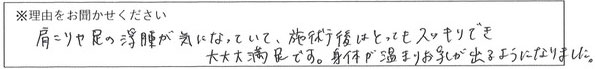 ※理由をお聞かせください
肩こりや足の浮腫が気になっていて、施術後はとってもスッキリでき
大大大満足です。身体が温まりお乳が出るようになりました。